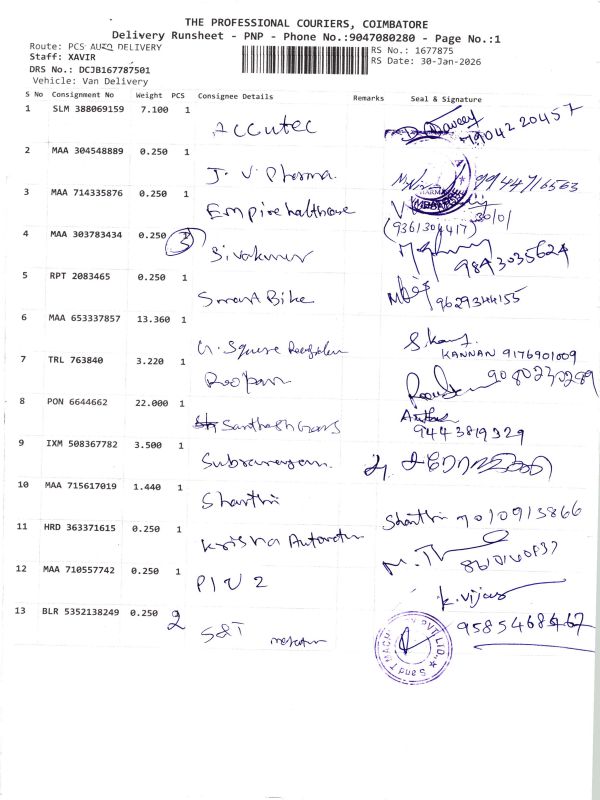 THE PROFESSIONAL COURIERS, COIMBATORE
Delivery Runsheet - PNP - Phone No.:9047080280 - Page No.:1
Route: PCS AUTO DELIVERY
RS No.: 1677875
Staff: XAVIR
RS Date: 30-Jan-2026
DRS No.: DCJB167787501
Vehicle: Van Delivery
S No Consignment No Weight PCS Consignee Details Remarks Seal & Signature
1 SLM 388069159 7.100 1
Accutec
7904220457
2 MAA 304548889 0.250 1
J. V. Pharma.
9944716563
3 MAA 714335876 0.250 1
Empire healthcare
30/01
(9361304417)
4 MAA 303783434 0.250 3
Sivakumar
9843035624
5 RPT 2083465 0.250 1
Smart Bike
9629344155
6 MAA 653337857 13.360 1
Square
KANNAN 9176901009
7 TRL 763840 3.220 1
Roopam
9080230289
8 PON 6644662 22.000 1
Santhosh
9443819329
9 IXM 508367782 3.500 1
10 MAA 715617019 1.440 1
Shanthi
Shanthi 9010913866
11 HRD 363371615 0.250 1
Krishna
12 MAA 710557742 0.250 1
K. Vijay
13 BLR 5352138249 0.250 2
S&T
9585468467